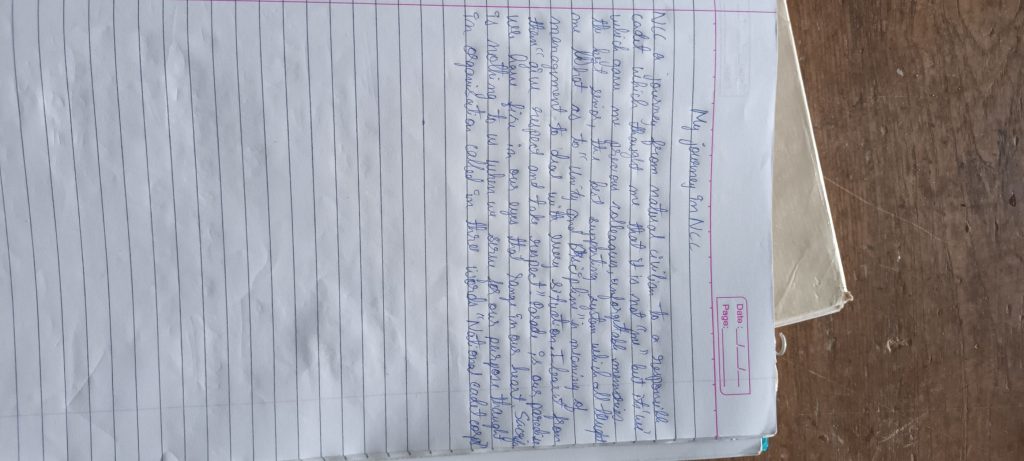 Date: __/__/__
Page:
My journey in NCC
NCC a journey from natural civilian to a responsible
cadet which thought me that it is not " " but rather
which gave me precious colleagues, unforgettable memories
the best senior, the best supporting system which all taught
me what as to "Unity and Discipline" is meaning of
management to deal with every situation I learnt from
them "give respect and take respect" parade is our paradise
we have fire in our eyes the song in our heart Sucide
is nothing to us when we serve for our purpose taught
in organisation called in three words "National cadet corps"